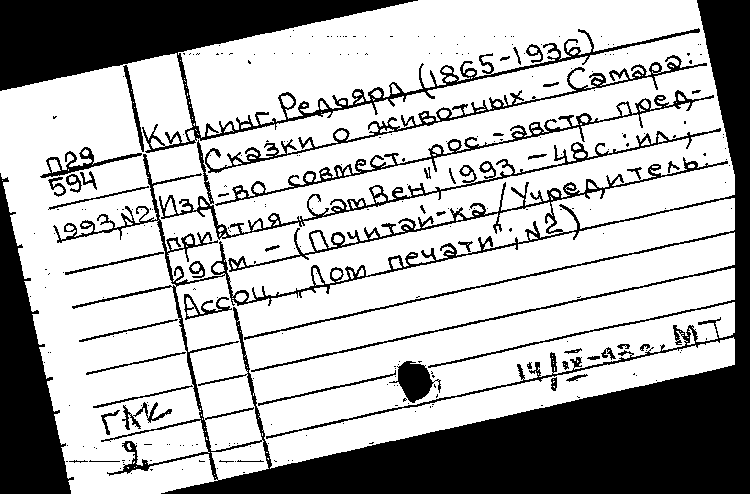 Киплинг, Редьярд (1865-1936)
Сказки о животных. – Самара:
П29
594
Изд-во совмест. рос.-австр. пред-
1993, N2
приятия "СамВен", 1993. – 48 с.: ил.;
29 см. – (Почитай-ка / Учредитель:
Ассоц. "Дом печати"; N2)
14/IX-93 г. МТ
ГАК
2